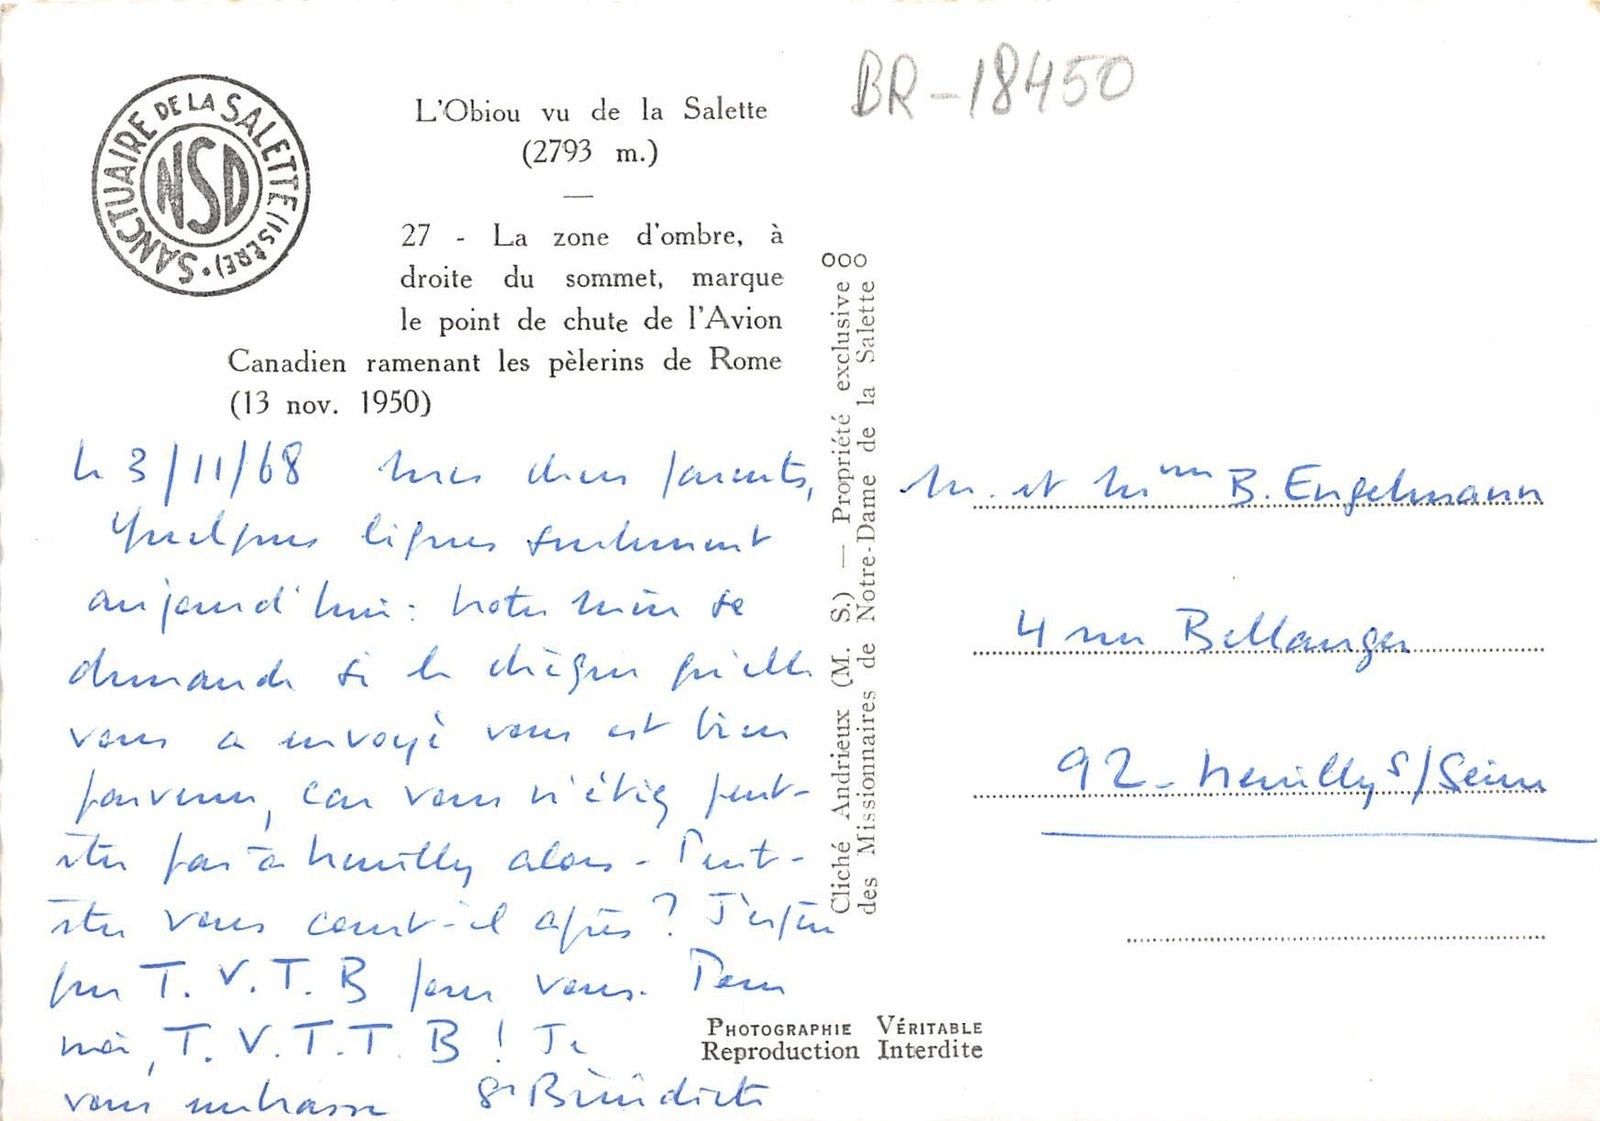 SANCTUAIRE DE LA SALETTE (ISÈRE) •
NSD
L'Obiou vu de la Salette
(2793 m.)
27 - La zone d'ombre, à
droite du sommet, marque
le point de chute de l'Avion
Canadien ramenant les pèlerins de Rome
(13 nov. 1950)
le 3/11/68 mes chers parents,
Quelques lignes seulement
aujourd'hui : notre mère se
demande si le chèque qu'elle
vous a envoyé vous est bien
parvenu, car vous n'étiez peut-
être pas à Neuilly alors - Peut-
être vous court-il après ? J'espère
que T. V. T. B pour vous. Pour
moi, T. V. T. T. B ! Je
vous embrasse Sr Bénédicte
Cliché Andrieux (M. S.) — Propriété exclusive
des Missionnaires de Notre-Dame de la Salette
ooo
BR-18450
M. et Mme B. Engelmann
4 rue Bellanger
92 - Neuilly s/Seine
Photographie Véritable
Reproduction Interdite